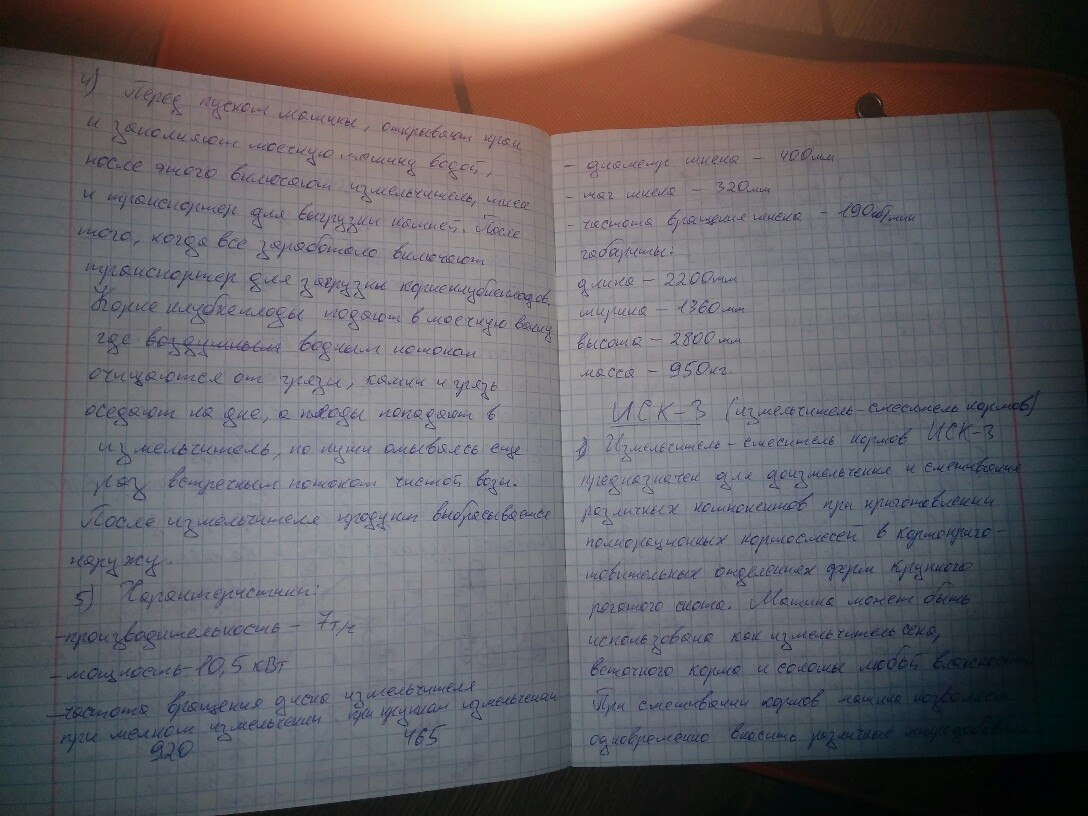 4) Перед пуском машины, открывают кран
и заполняют моечную машину водой,
после этого включают измельчитель, шнек
и транспортер для выгрузки камней. После
того, когда все заработало включают
транспортер для загрузки корнеклубнеплодов.
Корне клубнеплоды подают в моечную ванну
где воздушным водным потоком
очищаются от грязи, камни и грязь
оседают на дне, а плоды попадают в
измельчитель, по пути омываясь еще
раз встречным потоком чистой воды.
После измельчителя продукт выбрасывается
наружу.
5) Характеристики:
-производительность - 7т/ч
-мощность - 10,5 кВт
-частота вращения диска измельчителя
при мелком измельчении при крупном измельчении
920 465
- диаметр шнека - 400мм
- шаг шнека - 320мм
- частота вращения шнека - 190об/мин
габариты:
длина - 2200мм
ширина - 1360мм
высота - 2800мм
масса - 950кг.
ИСК-3 (измельчитель-смеситель кормов)
1) Измельчитель-смеситель кормов ИСК-3
предназначен для доизмельчения и смешивания
различных компонентов при приготовлении
полнорационных кормосмесей в кормопригo-
товительных отделениях ферм крупного
рогатого скота. Машина может быть
использована как измельчитель сена,
веточного корма и соломы любой влажности
При смешивании кормов машина позволяет
одновременно вносить различные